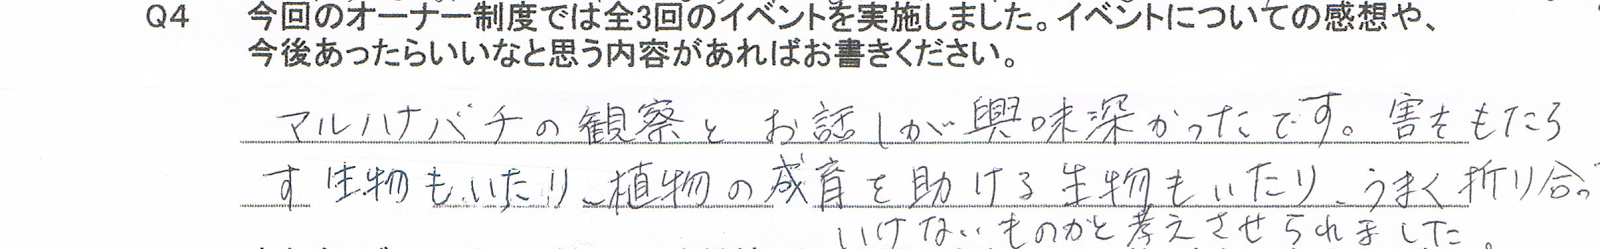 Q4 今回のオーナー制度では全3回のイベントを実施しました。イベントについての感想や、
今後あったらいいなと思う内容があればお書きください。
マルハナバチの観察とお話しが興味深かったです。害をもたら
す生物もいたり、植物の成育を助ける生物もいたり、うまく折り合っ
いけないものかと考えさせられました。